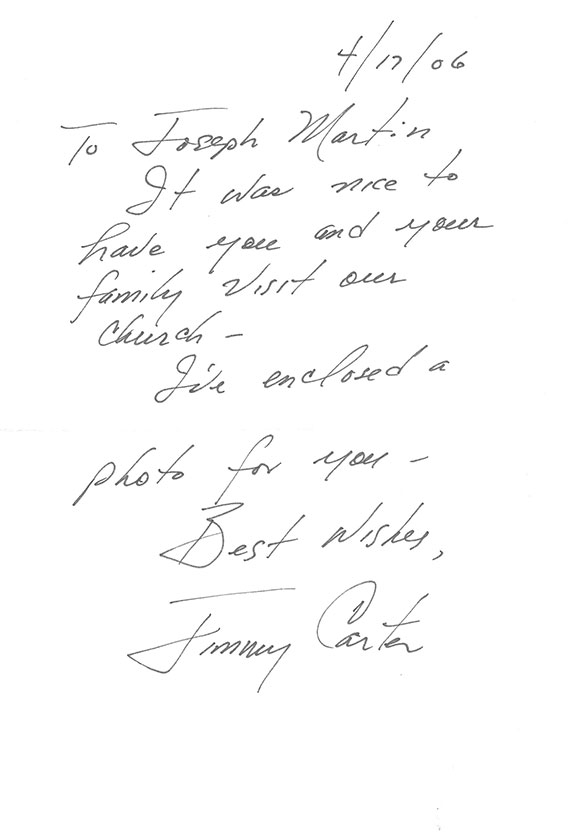 4/17/06
To Joseph Martin
It was nice to
have you and your
family visit our
church –
I've enclosed a
photo for you –
Best Wishes,
Jimmy Carter